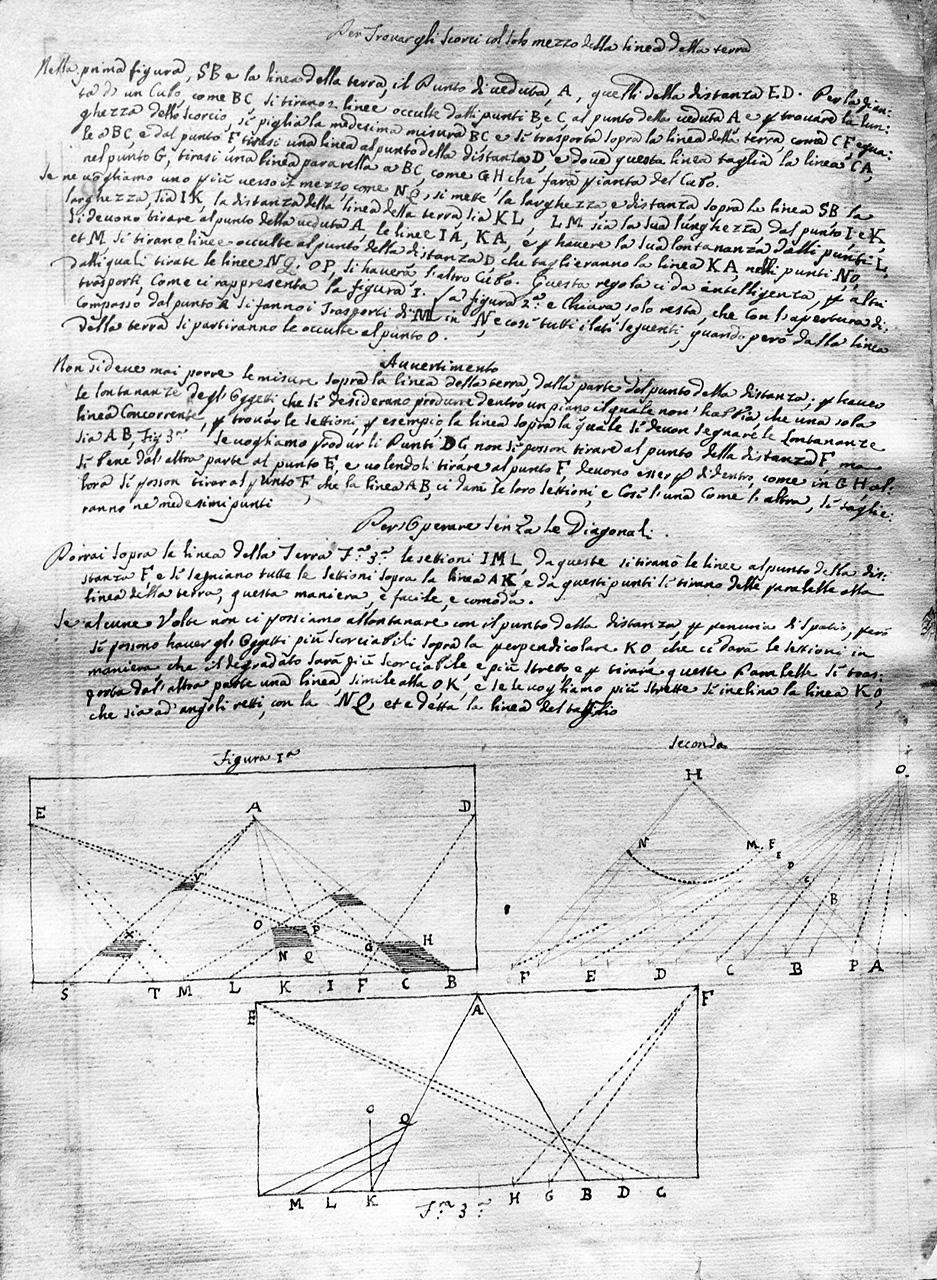 Per Trovar gli Scorci col solo mezzo della linea della terra
Nella prima figura, SB e la linea della terra, il Punto di veduta, A, quelli della distanza ED. Per la pian:
ta di un Cubo, come BC, si tirano 2 linee occulte dalli punti B e C al punto della veduta A e p trovare la lun:
ghezza dello scorcio, si piglia la medesima misura BC e si trasporta sopra la linea della terra come CF equa:
le a BC, e dal punto F, tirasi una linea al punto della distanza D, e dove questa linea taglia la linea CA,
nel punto G, tirasi una linea pararella a BC, come GH che farà pianta del Cubo.
Se ne vogliamo uno più verso il mezzo come NQ, si mette la larghezza e distanza sopra la linea SB la
larghezza, sia IK, la distanza della linea della terra sia KL, LM sia la sua lunghezza dal punto I e K,
si devono tirare al punto della veduta A, le linee IA, KA, e p havere la sua lontananza dalli punti L,
et M si tirano linee occulte al punto della distanza D che taglieranno la linea KA nelli punti NO,
dalli quali tirate le linee NQ, OP, si haverà l'altro Cubo. Questa regola ci da intelligenza, p altri
trasporti, come ci rappresenta la figura 1. La figura 2.a e Chiara, solo resta, che con l'apertura di:
Compasso dal punto H si fanno i Trasporti di M in N e così tutti i lati seguenti, quando però dalla linea
della terra si partiranno le occulte al punto O.
Avvertimento
Non si deve mai porre le misure sopra la linea della terra, dalla parte del punto della distanza, p haver
le lontananze degli Oggetti che si desiderano produrre dentro un piano il quale non habbia, che una sola
linea Concorrente, p trovar le settioni, p esempio la linea sopra la quale si devon segnare le Lontananze
sia AB, Fig 3.a Se vogliamo produr li Punti DC non si posson tirare al punto della distanza F, ma
si bene dal'altra parte al punto E, e volendoli tirare al punto F, devono esser p di dentro, come in GH al:
lora si posson tirar al punto F, che la linea AB, ci darà le loro settioni, e Così l'una Come l'altra, si taglie:
ranno ne medesimi punti
Per Operare senza le Diagonali.
Porrai sopra la linea della Terra F.a 3.a le settioni IML, da queste si tirano le linee al punto della dis:
stanza F e si segniano tutte le settioni sopra la linea AK, e da questi punti si tirano delle paralelle alla
linea della terra, questa maniera, è facile, e comoda.
Se alcune Volte non ci possiamo allontanare con il punto della distanza, p penuria di spatio, però
si possono haver gli Oggetti più scorciabili sopra la perpendicolare KO che ci darà le settioni in
maniera che il degradato sarà più scorciabile e più stretto e p tirare queste Paralelle si tras:
porta dal'altra parte una linea simile alla OK, e se le vogliamo più strette si inclina la linea KO,
che sia ad'angoli retti, con la NQ, et e detta la linea del taglio
Figura 1a
Seconda
E A D
V
X O P G H
N Q
S T M L K I F C B
H O
N M F E D C B
F E D C B P A
E A F
O Q
M L K H G B D C
F.a 3.a